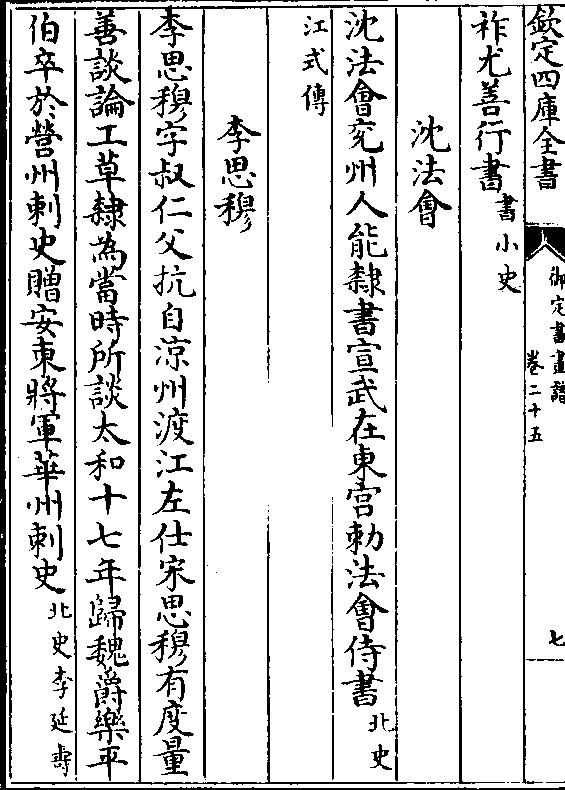 欽定四庫全書
御定書畫譜
卷二十五
七
祚尤善行書書小史
沈法會
沈法會兖州人能隸書宣武在東宮勅法會侍書北史
江式傳
李思穆
李思穆字叔仁父抗自涼州渡江左仕宋思穆有度量
善談論工草隸為當時所談太和十七年歸魏爵樂平
伯卒於營州刺史贈安東將軍華州刺史北史李延壽